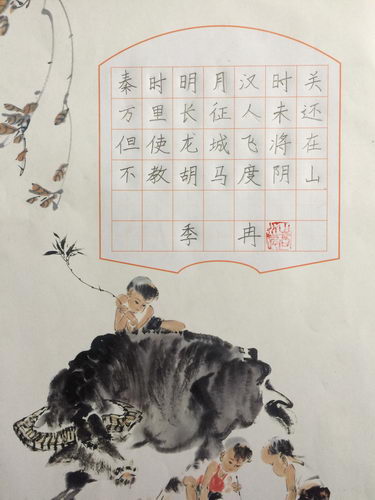 秦时明月汉时关
万里长征人未还
但使龙城飞将在
不教胡马度阴山
季冉